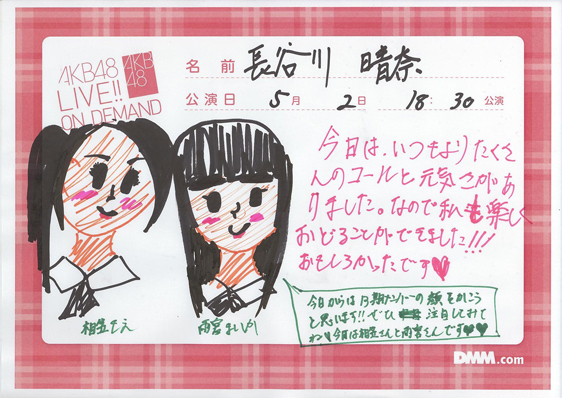 AKB48
LIVE!!
ON DEMAND
AKB
48
名前 長谷川 晴奈
公演日 5月 2日 18:30公演
今日は、いつもよりたくさ
んのコールと元気さがあ
りました。なので私も楽しく
おどることができました!!!
おもしろかったです♥
今日からは13期メンバーの顔をかこう
と思います!!ぜひ注目しておいて
ね♥今日は相笠さんと雨宮さんです♥♥
相笠もえ
雨宮まいか
DMM.com